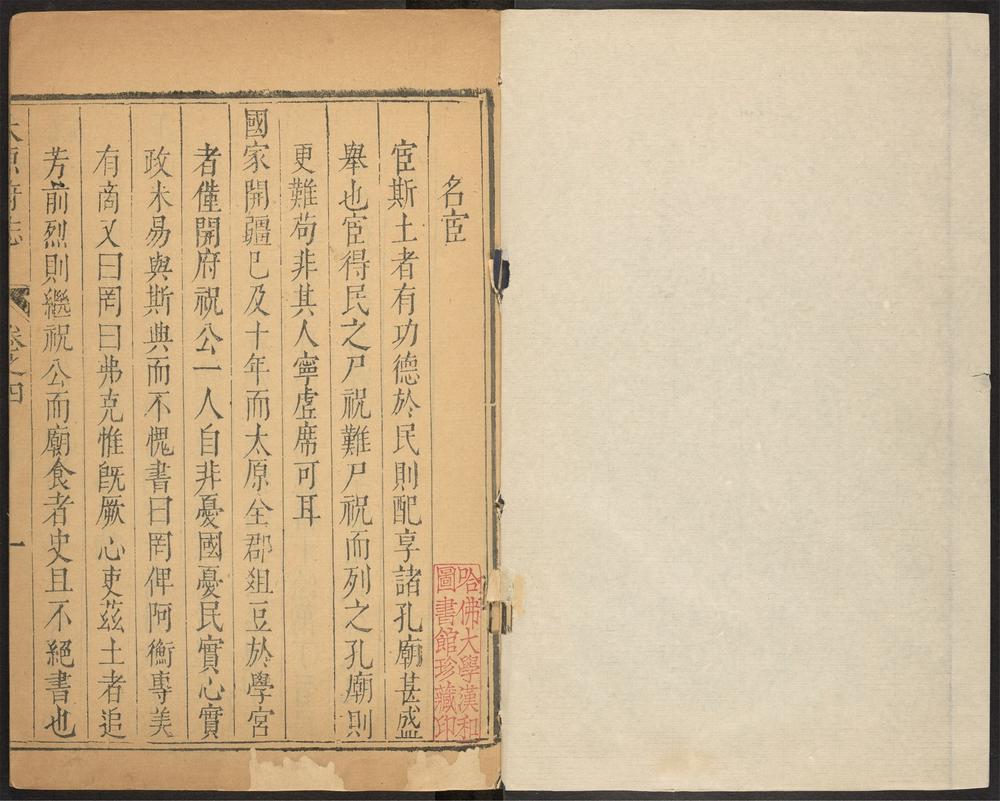 名宦
宦斯土者有功德於民則配享諸孔廟甚盛
舉也宦得民之尸祝難尸祝而列之孔廟則
更難苟非其人寧虛席可耳
國家開疆已及十年而太原全郡俎豆於學宮
者僅開府祝公一人自非憂國憂民實心實
政未易與斯典而不愧書曰罔俾阿衡專美
有商又曰罔曰弗克惟旣厥心吏茲土者追
芳前烈則繼祝公而廟食者史且不絕書也
太原府志 卷之四 一
哈佛大學漢和
圖書館珍藏印